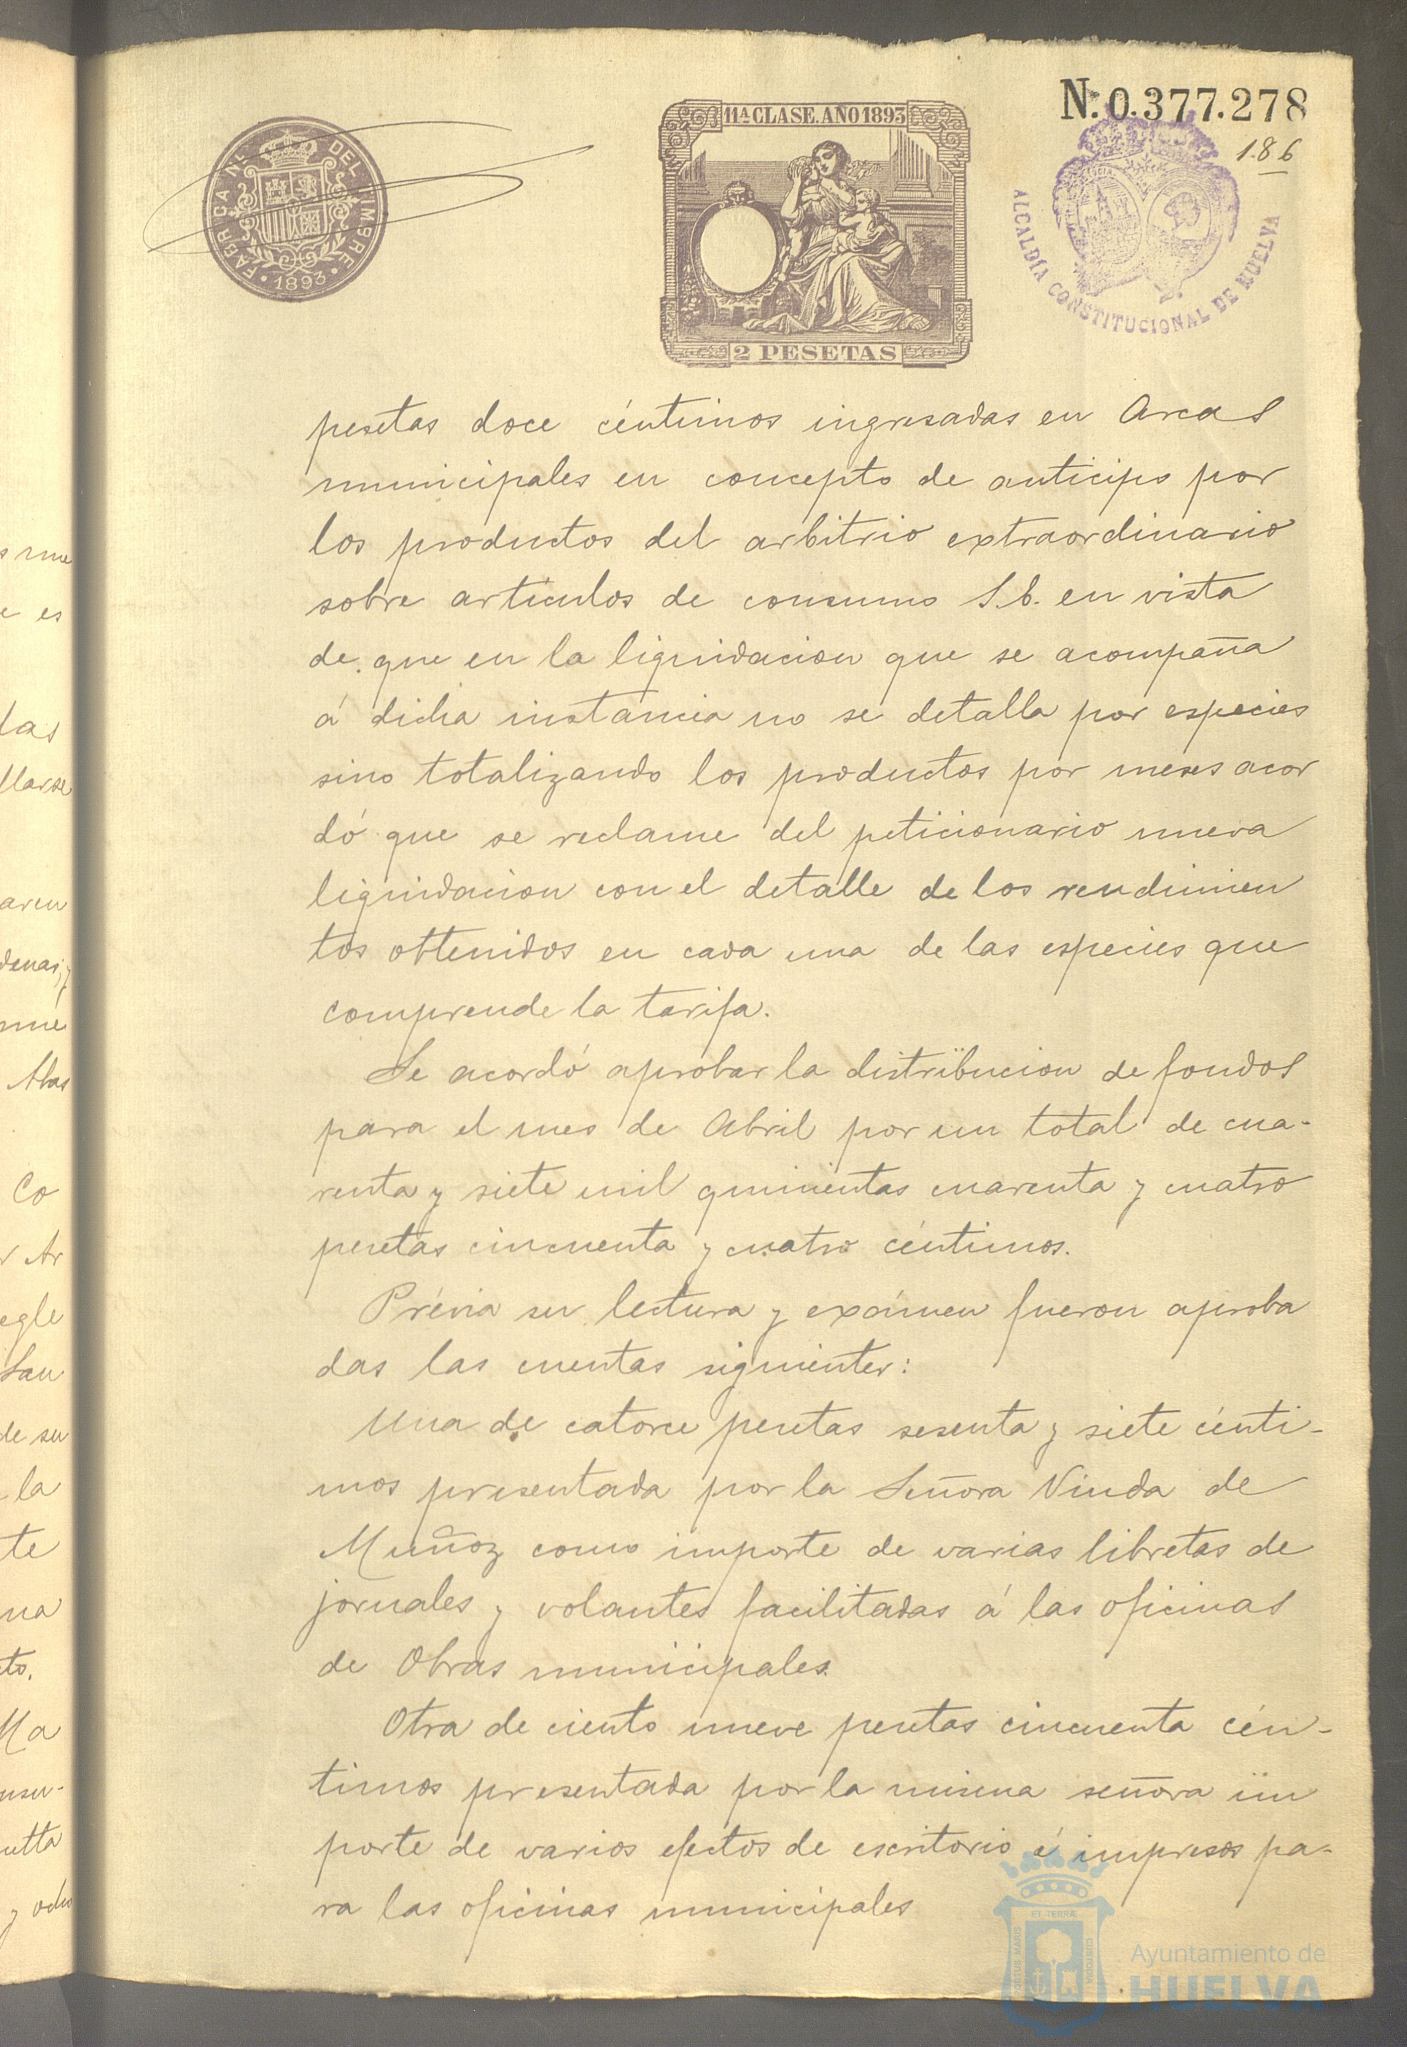 Nº 0.377.278
186
FÁBRICA NL. DEL TIMBRE
1893
11ª CLASE. AÑO 1893
2 PESETAS
ALCALDÍA CONSTITUCIONAL DE HUELVA
pesetas doce céntimos ingresadas en Arcas
municipales en concepto de anticipo por
los productos del arbitrio extraordinario
sobre artículos de consumo S.E. en vista
de que en la liquidacion que se acompaña
á dicha instancia no se detalla por especies
sino totalizando los productos por meses acor
dó que se reclame del peticionario nueva
liquidacion con el detalle de los rendimien
tos obtenidos en cada una de las especies que
comprende la tarifa.
Se acordó aprobar la distribucion de fondos
para el mes de Abril por un total de cua-
renta y siete mil quinientas cuarenta y cuatro
pesetas cincuenta y cuatro céntimos.
Prévia su lectura y exámen fueron aproba
das las cuentas siguientes:
Una de catorce pesetas sesenta y siete cénti-
mos presentada por la Señora Viuda de
Muñoz como importe de varias libretas de
jornales y volantes facilitadas á las oficinas
de Obras municipales.
Otra de ciento nueve pesetas cincuenta cén-
timos presentada por la misma señora im
porte de varios efectos de escritorio é impresos pa-
ra las oficinas municipales
s mue
e es
las
llarse
aren
denas, y
nme
Abas
Co
r Ar
egle
San
de su
la
te
na
to.
Ma
nsu-
utta
y odu
PORTUS MARIS ET TERRÆ CUSTODIA
Ayuntamiento de
HUELVA